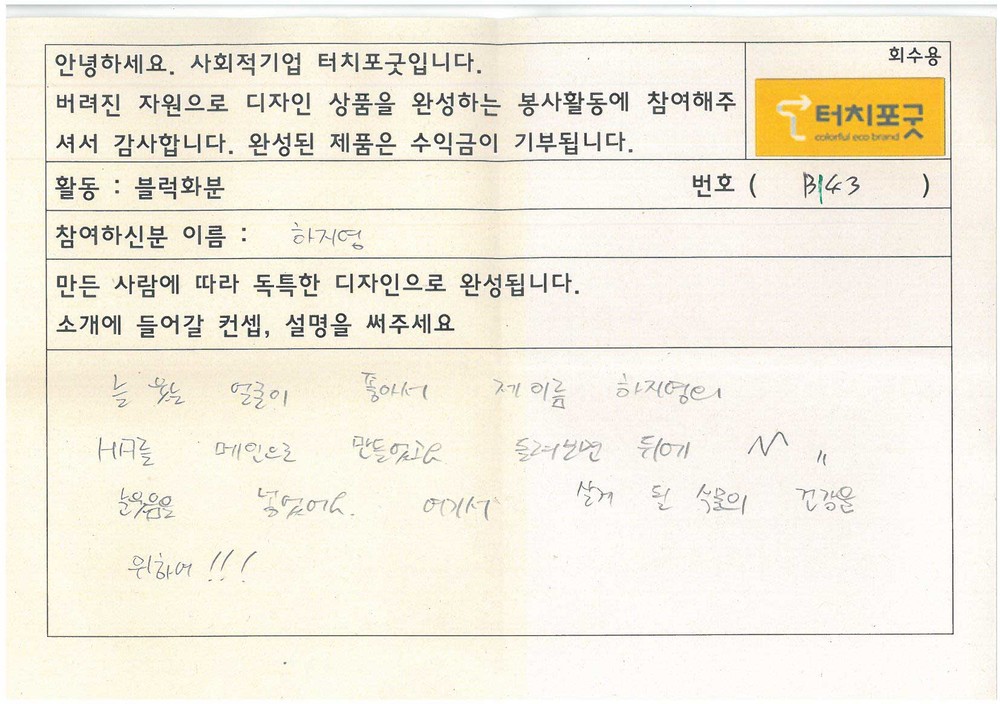 회수용
안녕하세요. 사회적기업 터치포굿입니다.
버려진 자원으로 디자인 상품을 완성하는 봉사활동에 참여해주
셔서 감사합니다. 완성된 제품은 수익금이 기부됩니다.
터치포굿
colorful eco brand
활동 : 블럭화분 번호 ( B143 )
참여하신분 이름 : 하지영
만든 사람에 따라 독특한 디자인으로 완성됩니다.
소개에 들어갈 컨셉, 설명을 써주세요
늘 웃는 얼굴이 좋아서 제 이름 하지영의
HA를 메인으로 만들었고요 돌려보면 뒤에 ^^ "
눈웃음을 넣었어요. 여기서 살게 된 식물의 건강을
위하여!!!